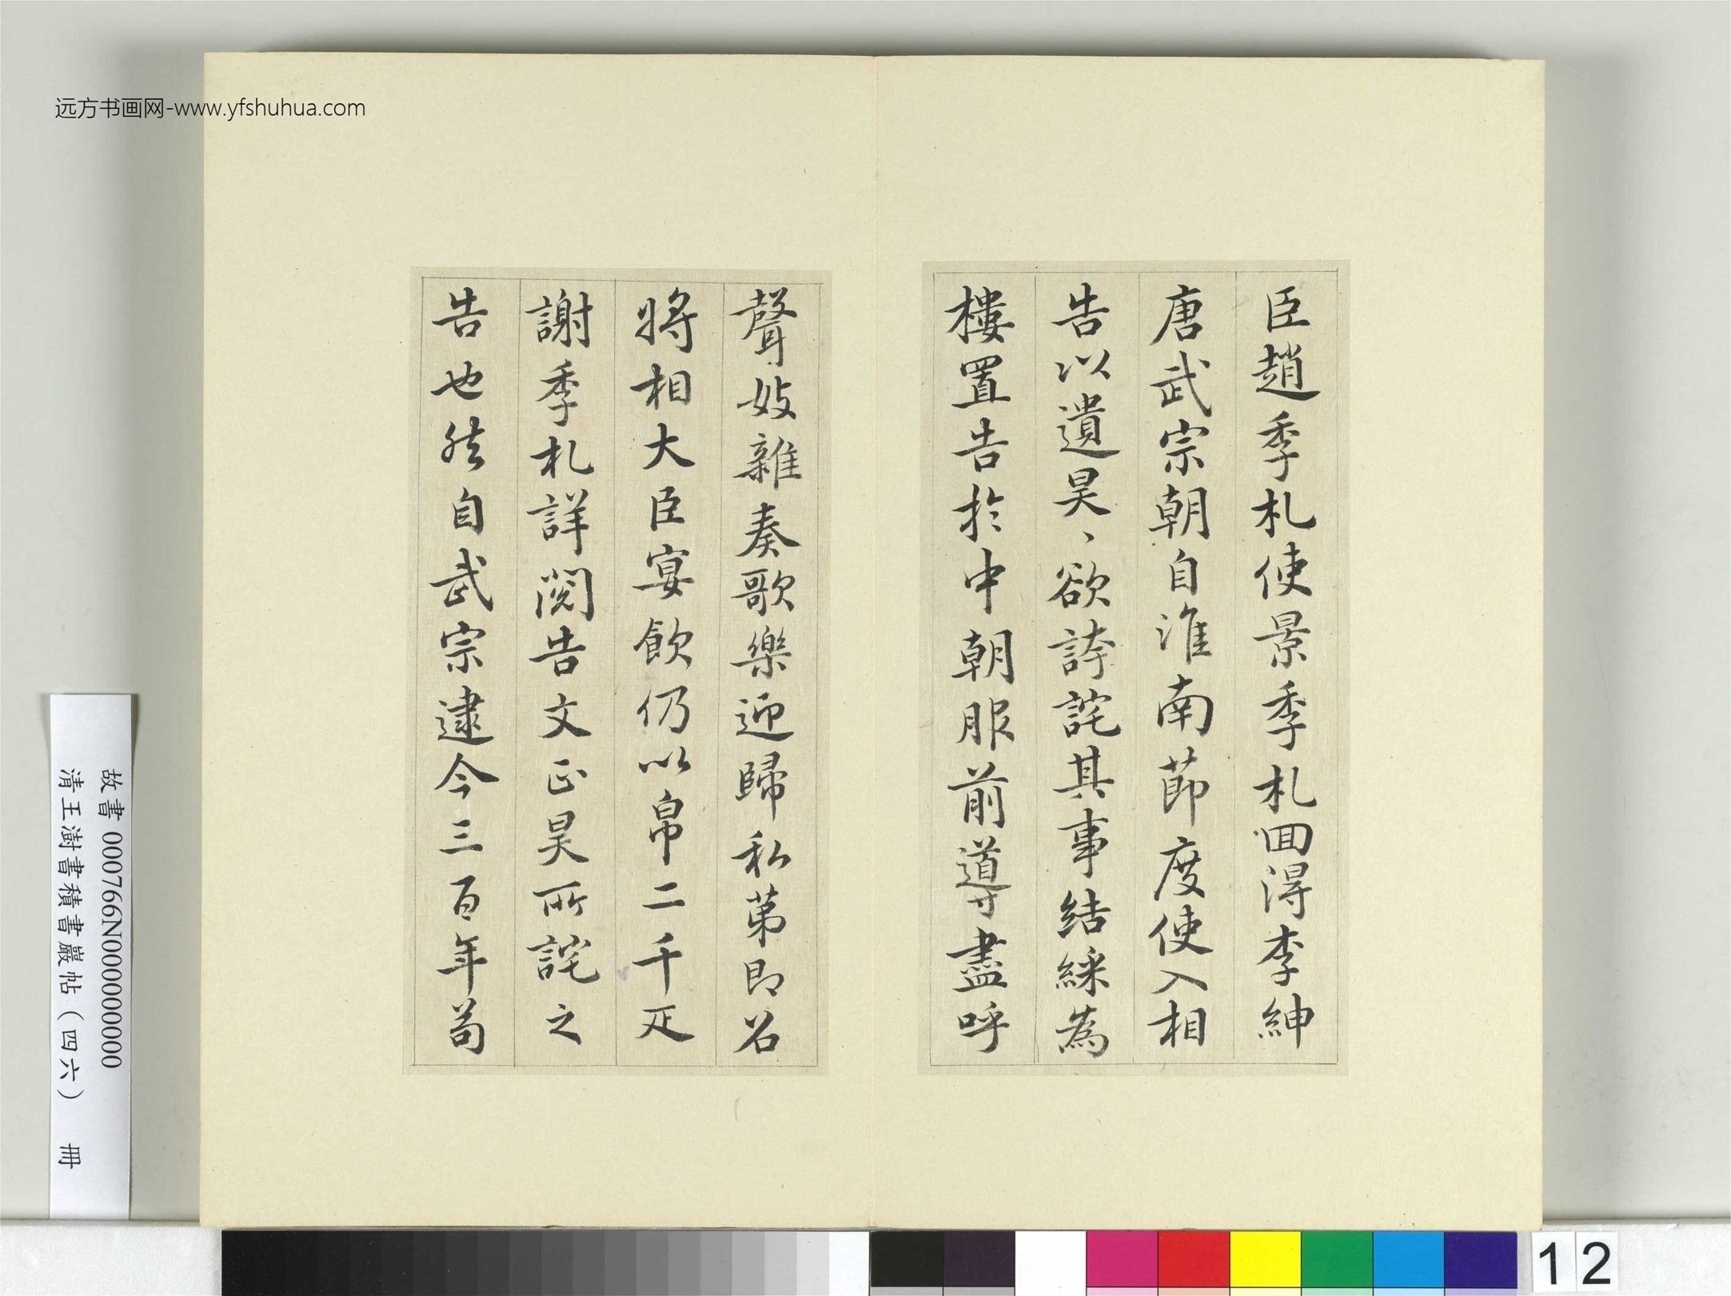 远方书画网-www.yfshuhua.com
臣趙季札使景季札回得李紳
唐武宗朝自淮南節度使入相
告以遺昊、欲誇詫其事結綵為
樓置告於中朝服前導盡呼
聲妓雜奏歌樂迎歸私第即召
將相大臣宴飲仍以帛二千疋
謝季札詳閱告文正昊所詫之
告也然自武宗逮今三百年苟
故書 000766N000000000
清王澍書積書巖帖（四六） 冊
12